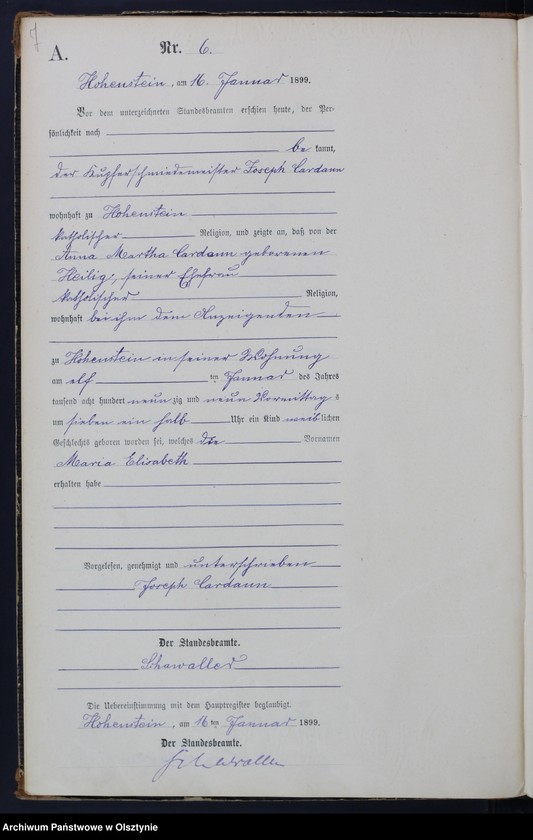 A.
Nr. 6.
Hohenstein, am 16. Januar 1899.
Vor dem unterzeichneten Standesbeamten erschien heute, der Per-
sönlichkeit nach
be kannt,
der Kupferschmiedemeister Joseph Cardann
wohnhaft zu Hohenstein
katholischer Religion, und zeigte an, daß von der
Anna Martha Cardann geborenen
Heilig, seiner Ehefrau
katholischer Religion,
wohnhaft bei ihm dem Anzeigenden
zu Hohenstein in seiner Wohnung
am elf ten Januar des Jahres
tausend acht hundert neun zig und neun Vormittag s
um sieben ein halb Uhr ein Kind weib lichen
Geschlechts geboren worden sei, welches die Vornamen
Maria Elisabeth
erhalten habe
Vorgelesen, genehmigt und unterschrieben
Joseph Cardann
Der Standesbeamte.
Schawaller
Die Uebereinstimmung mit dem Hauptregister beglaubigt.
Hohenstein, am 16 ten Januar 1899.
Der Standesbeamte.
Schawaller
Archiwum Państwowe w Olsztynie